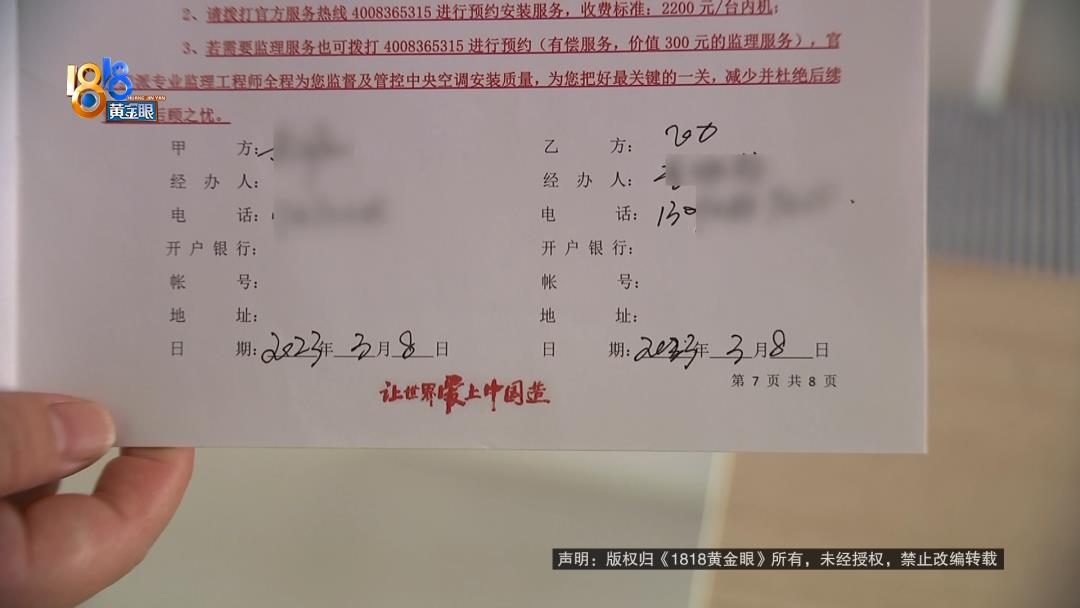 2、请拨打官方服务热线 4008365315 进行预约安装服务，收费标准：2200 元/台内机；
3、若需要监理服务也可拨打 4008365315 进行预约（有偿服务，价值 300 元的监理服务），官
派专业监理工程师全程为您监督及管控中央空调安装质量，为您把好最关键的一关，减少并杜绝后续
后顾之忧。
1818
HUANG JIN YAN
黄金眼
甲 方： 乙 方：
经 办 人： 经 办 人：
电 话： 电 话：130
开 户 银 行： 开 户 银 行：
帐 号： 帐 号：
地 址： 地 址：
日 期：2023年 3 月 8 日 日 期：2023年 3 月 8 日
第 7 页 共 8 页
让世界爱上中国造
声明：版权归《1818黄金眼》所有，未经授权，禁止改编转载